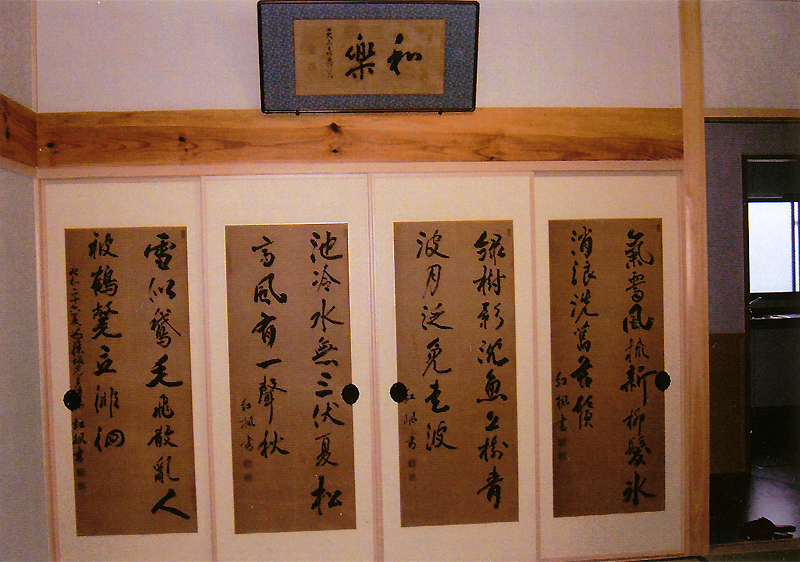 和樂
氣霽風梳新柳髮氷
消浪洗舊苔鬚
紅楓書
綠樹影沈魚上樹青
波月泛兎走波
紅楓書
池冷水無三伏夏松
高風有一聲秋
紅楓書
雪似鵞毛飛散亂人
被鶴氅立徘徊
昭和二十六夏為
紅楓書